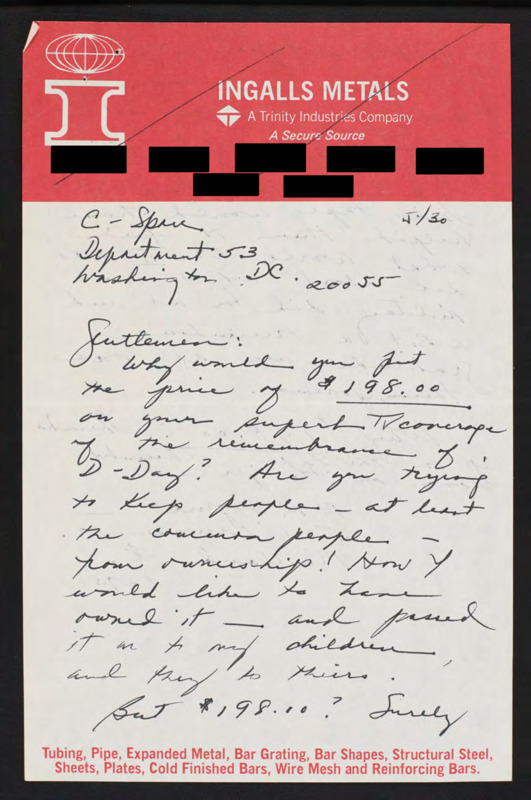 INGALLS METALS
A Trinity Industries Company
A Secure Source
C-Span 5/30
Department 53
Washington DC. 20055
Gentlemen:
Why would you put
the price of $198.00
on your superb TV coverage
of the remembrance of
D-Day? Are you trying
to keep people - at least
the common people -
from ownership! How I
would like to have
owned it - and passed
it on to my children,
and they to theirs.
But $198.00? Surely
Tubing, Pipe, Expanded Metal, Bar Grating, Bar Shapes, Structural Steel,
Sheets, Plates, Cold Finished Bars, Wire Mesh and Reinforcing Bars.